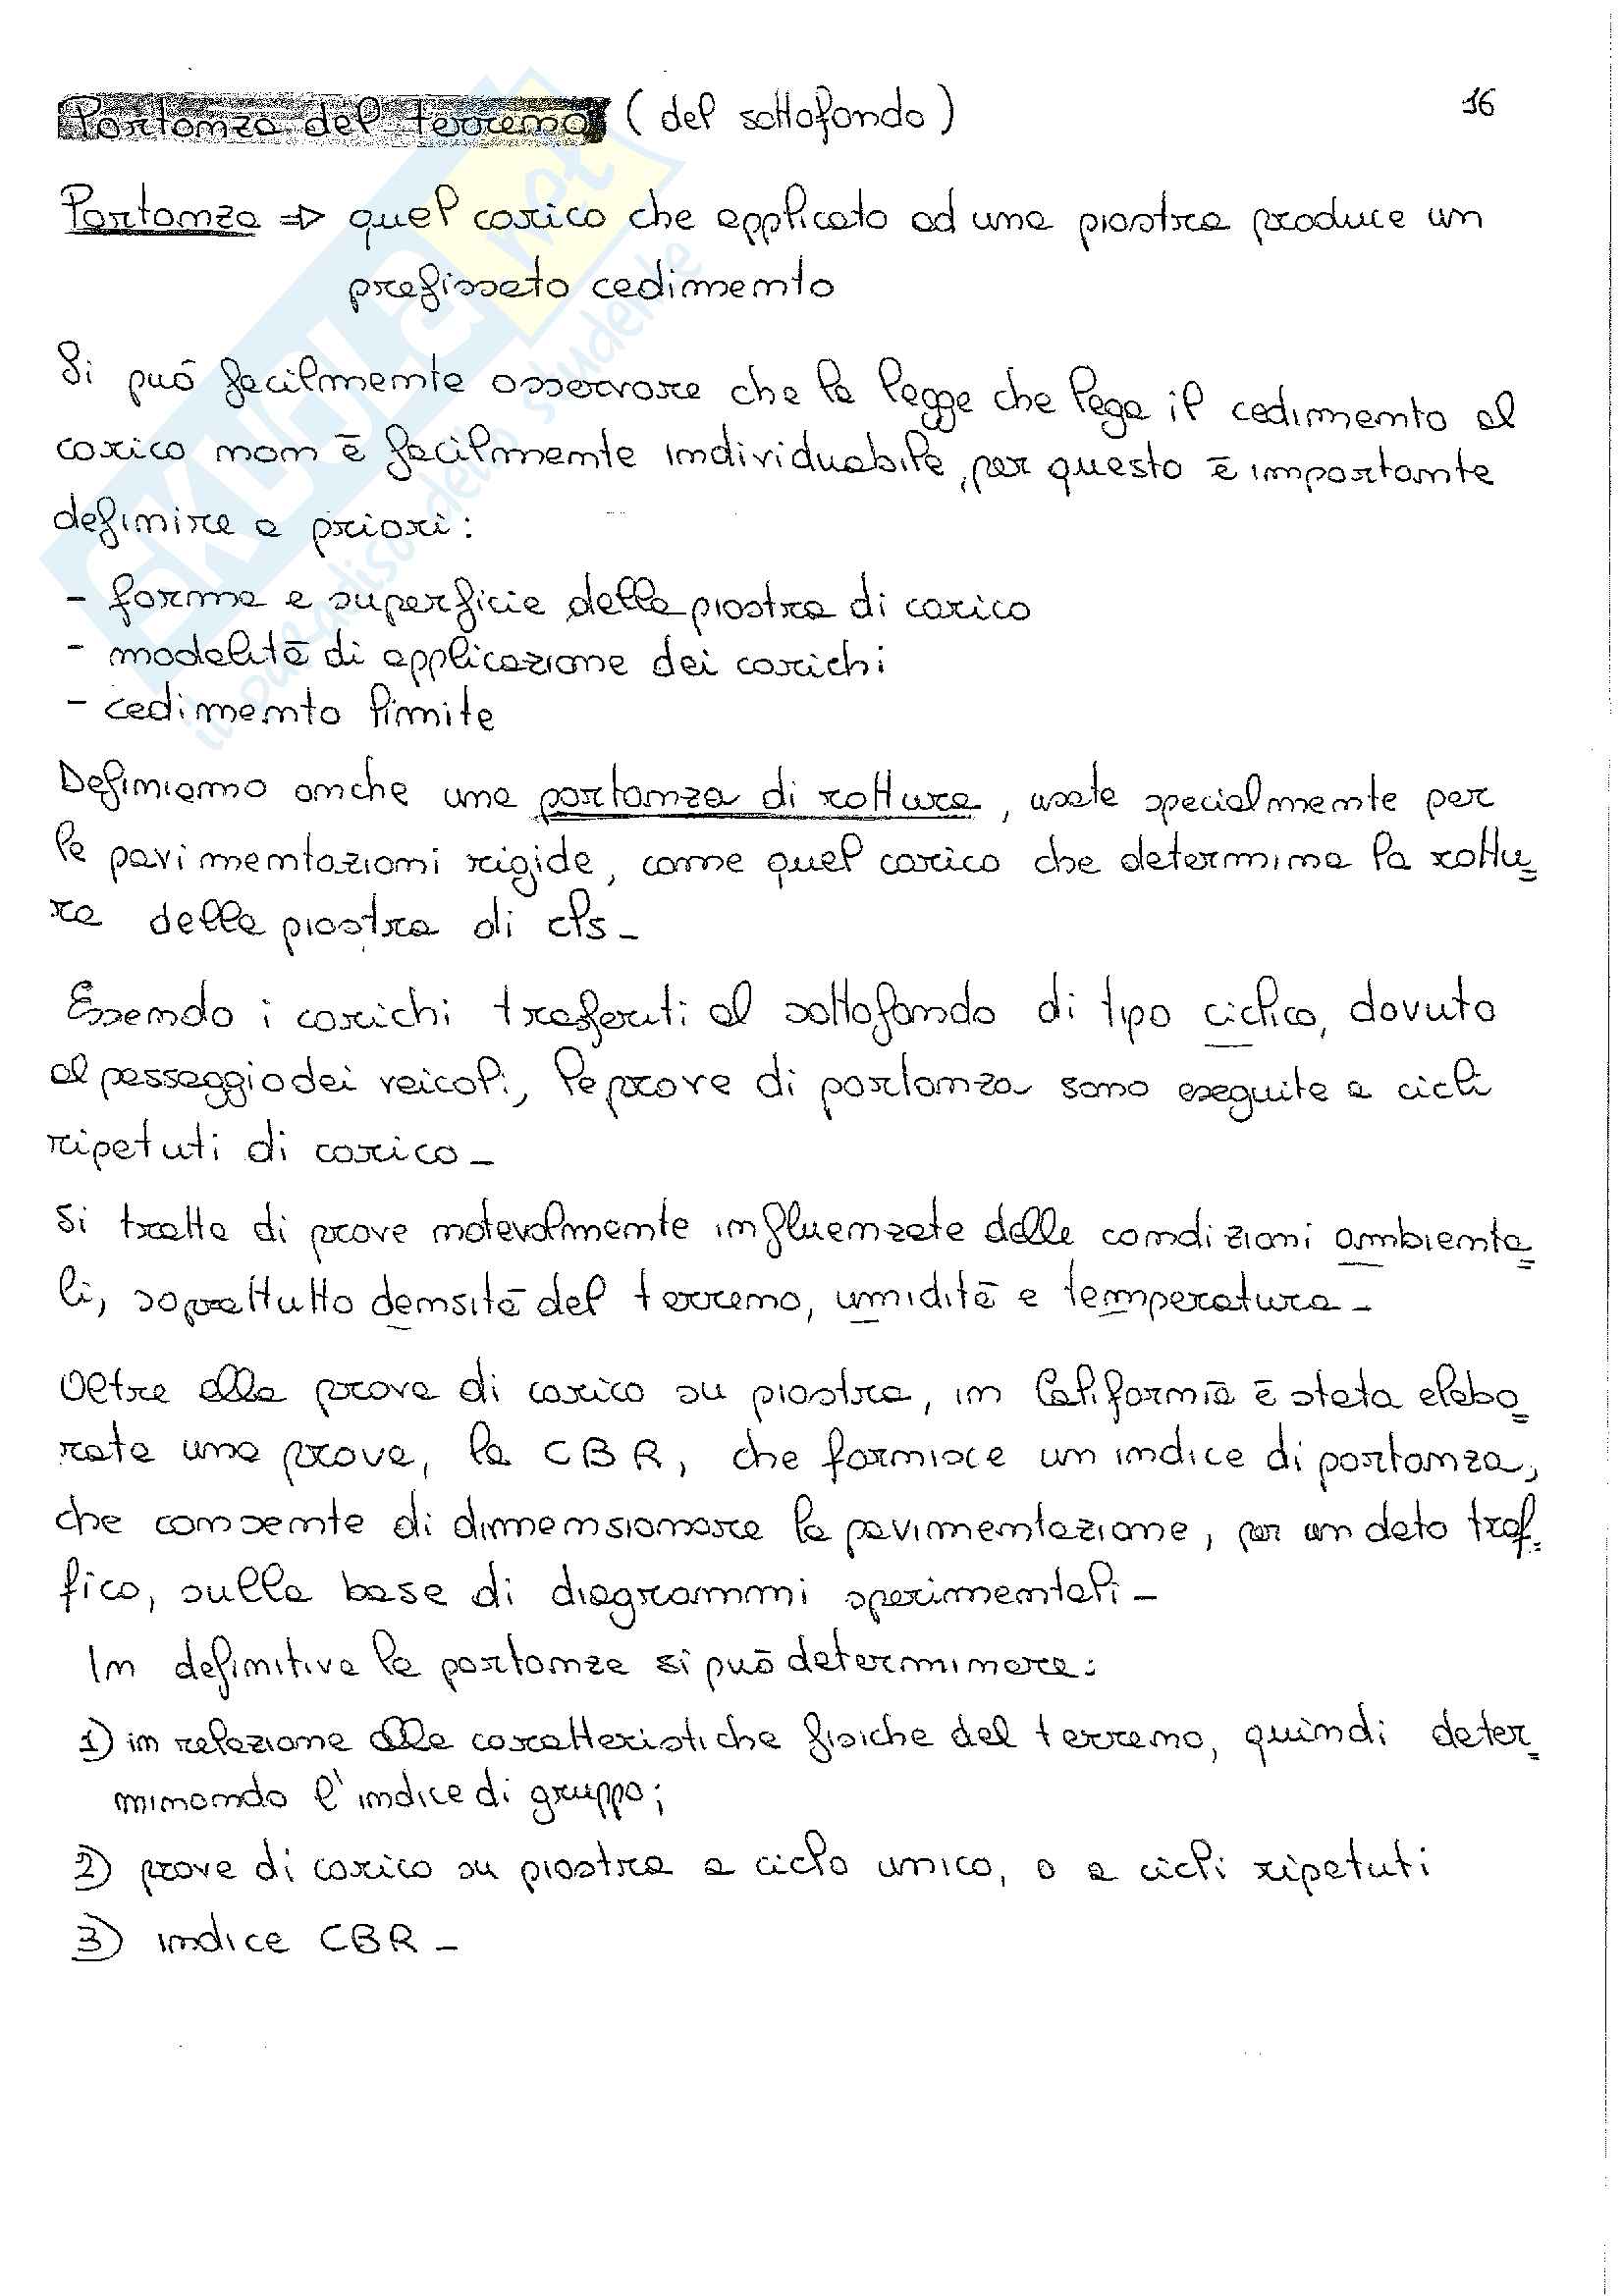 16
Portanza del terreno (del sottofondo)
Portanza ⇒ quel carico che applicato ad una piastra produce un
prefissato cedimento
Si può facilmente osservare che la legge che lega il cedimento al
carico non è facilmente individuabile, per questo è importante
definire a priori:
- forma e superficie della piastra di carico
- modalità di applicazione dei carichi
- cedimento limite
Definiamo anche una portanza di rottura, usata specialmente per
le pavimentazioni rigide, come quel carico che determina la rottu=
ra della piastra di cls_
Essendo i carichi trasferiti al sottofondo di tipo ciclico, dovuto
al passaggio dei veicoli, le prove di portanza sono eseguite a cicli
ripetuti di carico_
Si tratta di prove notevolmente influenzate dalle condizioni ambienta=
li, soprattutto densità del terreno, umidità e temperatura_
Oltre alla prova di carico su piastra, in California è stata elabo=
rata una prova, la CBR, che fornisce un indice di portanza,
che consente di dimensionare la pavimentazione, per un dato traf=
fico, sulla base di diagrammi sperimentali_
In definitiva la portanza si può determinare:
1) in relazione alle caratteristiche fisiche del terreno, quindi deter=
minando l'indice di gruppo;
2) prove di carico su piastra a ciclo unico, o a cicli ripetuti
3) indice CBR_
SKUOLA.net
il paradiso dello studente